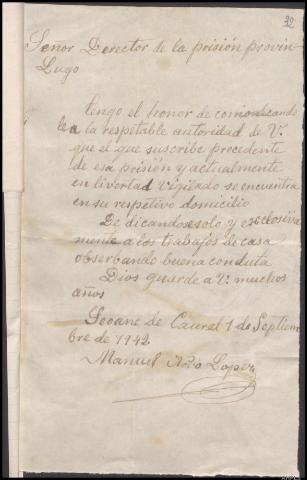 32
Señor Director de la prisión provin
Lugo
tengo el honor de comonicando
lea la respetable autoridad de V.
que el que suscribe precedente
de esa prisión y actualmente
en livertad vigilado se encuentra
en su respetivo domicilio
De dicandosesolo y esclosiva
mente a los trabajos de casa
obserbando buena conduta
Dios guarde a V. muchos
años
Seoane de Caurel 1 de Septiem
bre de 1942
Manuel López